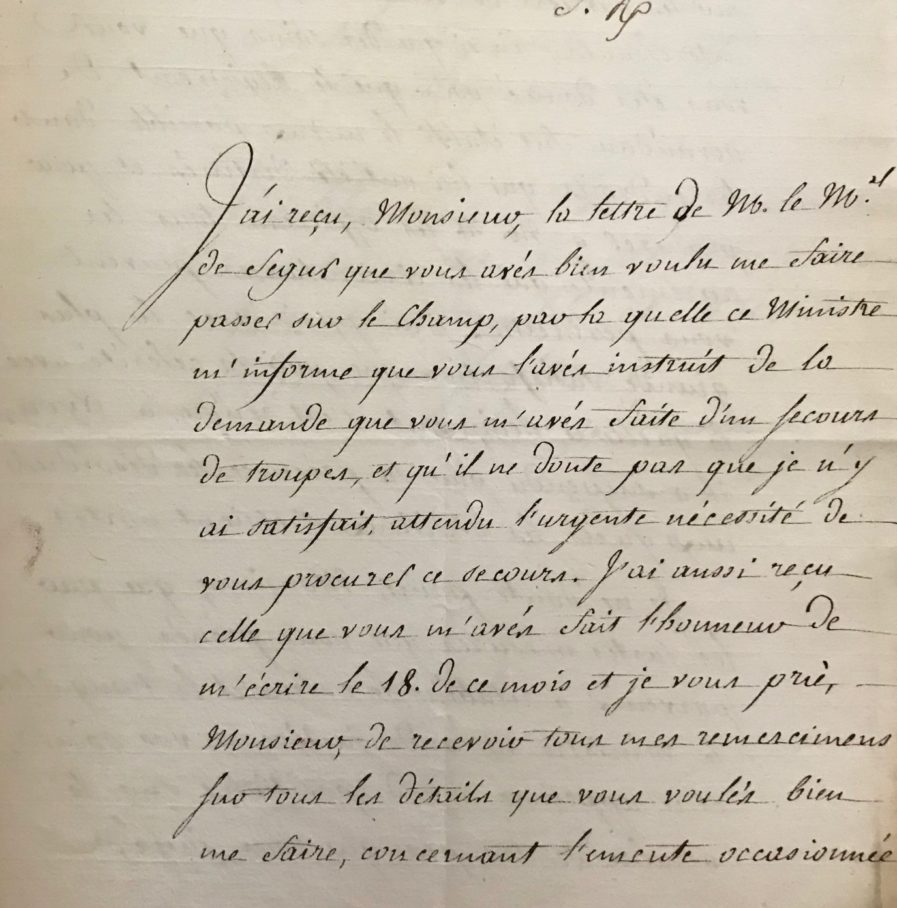 J'ai reçu, Monsieur, la lettre de M. le M.al
de Segur que vous avés bien voulu me faire
passer sur le Champ, par la quelle ce Ministre
m'informe que vous l'avés instruit de la
demande que vous m'avés faite d'un secours
de troupes, et qu'il ne doute pas que je n'y
ai satisfait, attendu l'urgente nécessité de
vous procurer ce secours. J'ai aussi reçu
celle que vous m'avés fait l'honneur de
m'écrire le 18. de ce mois et je vous prie,
Monsieur, de recevoir tous mes remercimens
sur tous les détails que vous voulés bien
me faire, concernant l'emeute occasionnée